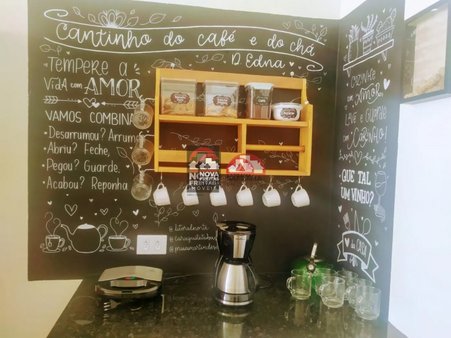 Cantinho do café e do chá
D Edna
TEMPERE A
VIDA com AMOR
VAMOS COMBINAR
Desarrumou? Arrume
Abriu? Feche,
Pegou? Guarde.
Acabou? Reponha
COZINHE
com AMOR
LAVE e GUARDE
com CARINHO!
QUE TAL
UM VINHO?
da CASA
NOVA
FREITAS
IMÓVEIS
#litoralnorte